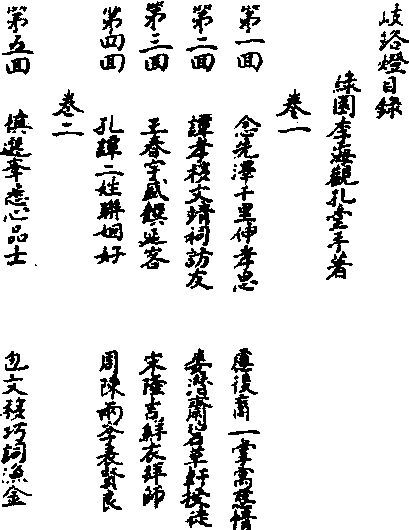 歧路燈目錄
綠園李海觀孔堂手著
卷一
第一回 念先澤千里伸孝思 慮後裔一掌寓慈情
第二回 譚孝移文靖祠訪友 婁潛齋碧草軒授徒
第三回 王春宇盛饌延客 宋隆吉鮮衣拜師
第四回 孔譚二姓聯姻好 周陳兩學表賢良
卷二
第五回 慎選舉悉心品士 包文移巧詞漁金